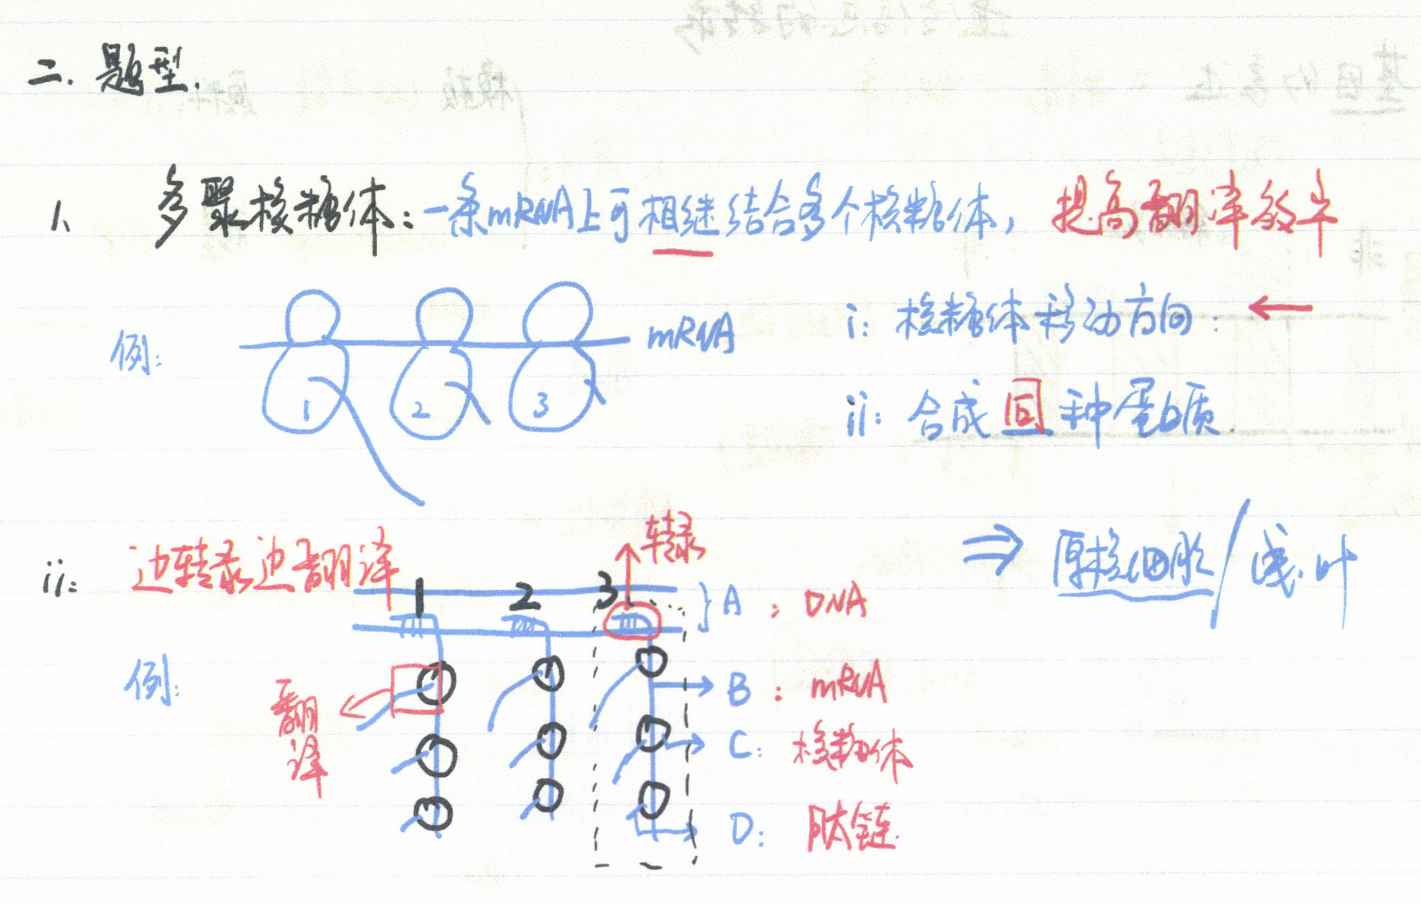 二. 题型.
1、 多聚核糖体:一条mRNA上可相继结合多个核糖体, 提高翻译效率
例: 1 2 3 mRNA
i: 核糖体移动方向: ←
ii: 合成同种蛋白质.
ii: 边转录边翻译 转录 ⇒ 原核细胞/线.叶
1 2 3 } A : DNA
例: 翻译 → B : mRNA
→ C: 核糖体
→ D: 肽链.